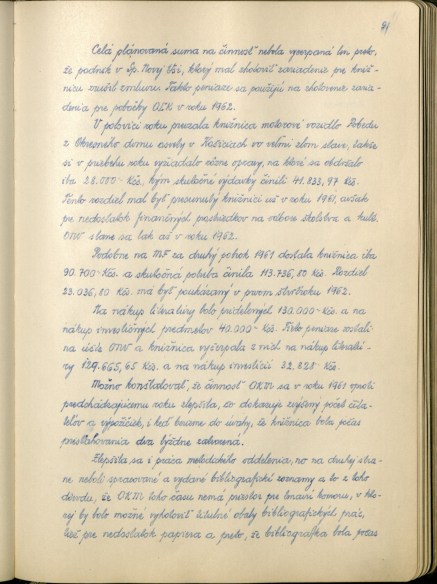 91
Celá plánovaná suma na činnosť nebola vyčerpaná len preto,
že podnik v Sp. Novej Vsi, ktorý mal zhotoviť zariadenie pre kniž-
nicu zrušil zmluvu. Takto peniaze sa použijú na zhotovenie zaria-
denia pre pobočky OĽK v roku 1962.
V polovici roku prevzala knižnica motorové vozidlo Pobedu
z Okresného domu osvety v Košiciach vo veľmi zlom stave, takže
si v priebehu roku vyžiadalo rôzne opravy, na ktoré sa obdržalo
iba 28.000.- Kčs, kým skutočné výdavky činili 41.823,97 Kčs.
Tento rozdiel mal byť presunutý knižnici už v roku 1961, avšak
pre nedostatok finančných prostriedkov na odbore školstva a kult.
ONV stane sa tak až v roku 1962.
Podobne na MF za druhý polrok 1961 dostala knižnica iba
90.700.- Kčs. a skutočná potreba činila 113.736,80 Kčs. Rozdiel
23.036,80 Kčs. má byť poukázaný v prvom štvrťroku 1962.
Na nákup literatúry bolo pridelených 130.000.- Kčs. a na
nákup investičných predmetov 40.000.- Kčs. Tieto peniaze zostali
na účte ONV a knižnica vyčerpala z nich na nákup literatú-
ry 129.665,65 Kčs. a na nákup investícií 32.828.- Kčs.
Možno konštatovať, že činnosť OĽK sa v roku 1961 oproti
predchádzajúcemu roku zlepšila, čo dokazuje zvýšený počet čita-
teľov aj výpožičiek, i keď berieme do úvahy, že knižnica bola počas
presťahovania dva týždne zatvorená.
Zlepšila sa i práca metodického oddelenia, no na druhej stra-
ne neboli spracované a vydané bibliografické zoznamy a to z toho
dôvodu, že OĽK toho času nemá priestor pre tmavú komoru, v kto-
rej by bolo možné vyhotoviť titulné obaly bibliografických prác,
tiež pre nedostatok papiera a preto, že bibliografka bola počas